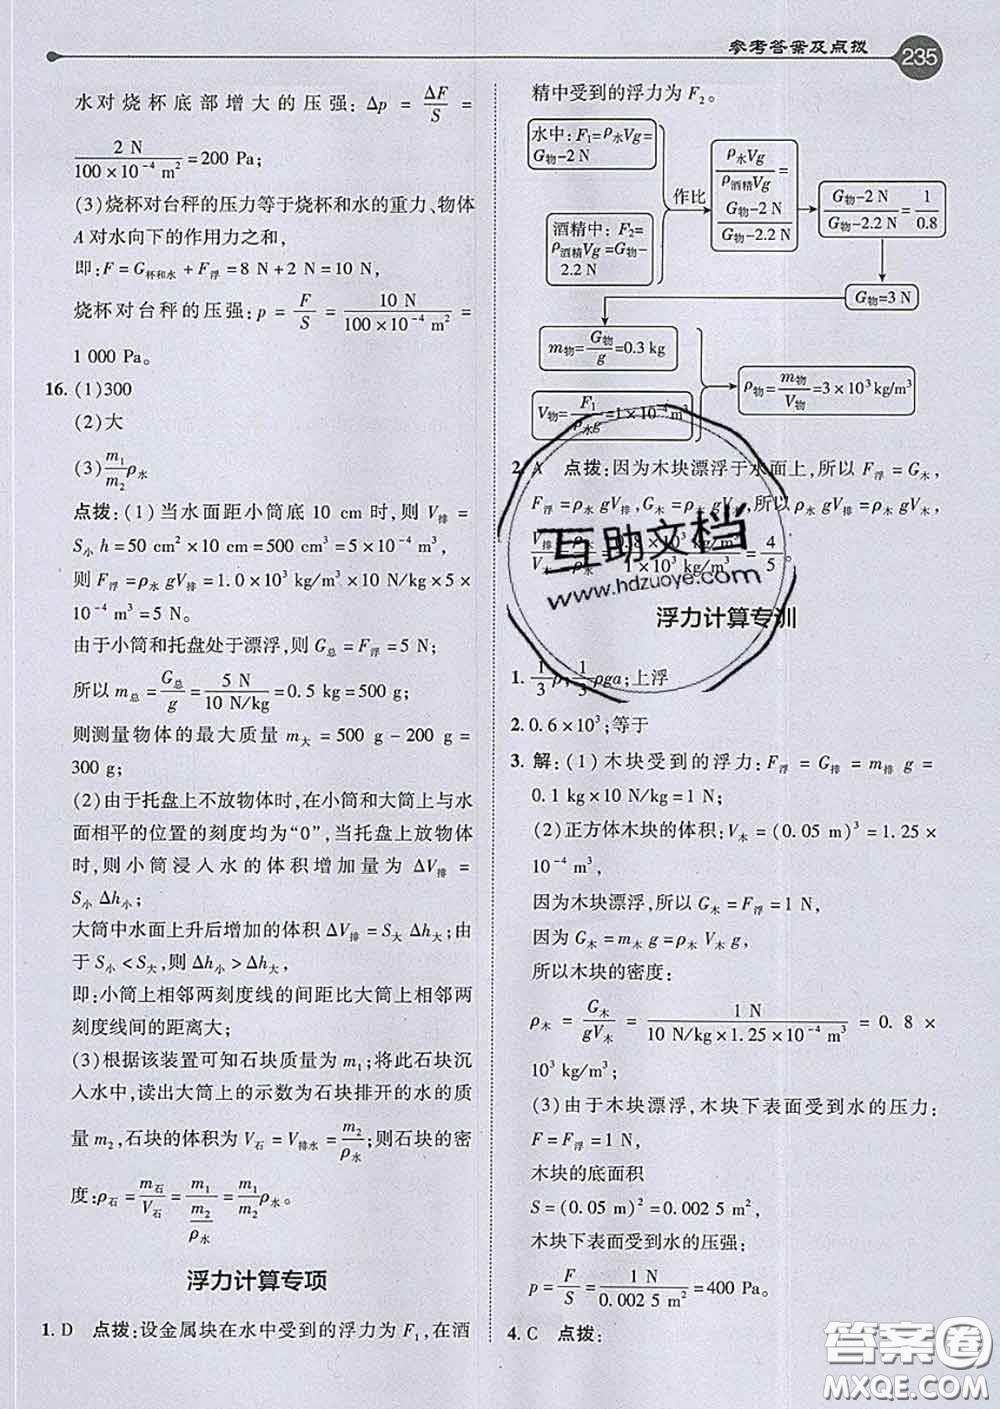 参考答案及点拨 235
水对烧杯底部增大的压强：Δp = ΔF/S =
2 N/(100×10⁻⁴ m²)=200 Pa；
(3)烧杯对台秤的压力等于烧杯和水的重力、物体
A对水向下的作用力之和，
即：F=G杯和水+F浮=8 N+2 N=10 N，
烧杯对台秤的压强：p = F/S = 10 N/(100×10⁻⁴ m²) =
1 000 Pa。
16. (1)300
(2)大
(3)(m₁/m₂)ρ水
点拨：(1)当水面距小筒底 10 cm 时，则 V排 =
S小 h=50 cm²×10 cm=500 cm³=5×10⁻⁴ m³，
则 F浮=ρ水 gV排=1.0×10³ kg/m³×10 N/kg×5×
10⁻⁴ m³=5 N。
由于小筒和托盘处于漂浮，则 G总=F浮=5 N，
所以 m总=G总/g=5 N/(10 N/kg)=0.5 kg=500 g；
则测量物体的最大质量 m大 = 500 g－200 g =
300 g；
(2)由于托盘上不放物体时，在小筒和大筒上与水
面相平的位置的刻度均为“0”，当托盘上放物体
时，则小筒浸入水的体积增加量为 ΔV排 =
S小 Δh小；
大筒中水面上升后增加的体积 ΔV排=S大 Δh大；由
于 S小<S大，则 Δh小>Δh大，
即：小筒上相邻两刻度线的间距比大筒上相邻两
刻度线间的距离大；
(3)根据该装置可知石块质量为 m₁；将此石块沉
入水中，读出大筒上的示数为石块排开的水的质
量 m₂，石块的体积为 V石=V排水=m₂/ρ水；则石块的密
度：ρ石=m石/V石=m₁/(m₂/ρ水)=(m₁/m₂)ρ水。
浮力计算专项
1. D 点拨：设金属块在水中受到的浮力为 F₁，在酒
精中受到的浮力为 F₂。
水中：F₁=ρ水Vg=
G物－2 N
酒精中：F₂=
ρ酒精Vg=G物－
2.2 N
作比
ρ水Vg/ρ酒精Vg=
(G物－2 N)/(G物－2.2 N)
(G物－2 N)/(G物－2.2 N)=1/0.8
G物=3 N
m物=G物/g=0.3 kg
V物=F₁/(ρ水g)=1×10⁻⁴m³
ρ物=m物/V物=3×10³kg/m³
2. A 点拨：因为木块漂浮于水面上，所以 F浮=G木，
F浮=ρ水 gV排，G木=ρ木 gV木，所以 ρ水 gV排=ρ木 gV木，
V排/V木=ρ木/ρ水=0.8×10³ kg/m³/(1×10³ kg/m³)=4/5。
浮力计算专训
1. (1/3)ρ；(1/3)ρga；上浮
2. 0.6×10³；等于
3. 解：(1)木块受到的浮力：F浮=G排=m排 g =
0.1 kg×10 N/kg=1 N；
(2)正方体木块的体积：V木=(0.05 m)³=1.25×
10⁻⁴ m³，
因为木块漂浮，所以 G木=F浮=1 N，
因为 G木=m木 g=ρ木 V木 g，
所以木块的密度：
ρ木 = G木/(gV木) = 1 N/(10 N/kg×1.25×10⁻⁴ m³) = 0.8×
10³ kg/m³；
(3)由于木块漂浮，木块下表面受到水的压力：
F=F浮=1 N，
木块的底面积
S=(0.05 m)²=0.002 5 m²，
木块下表面受到水的压强：
p=F/S=1 N/(0.002 5 m²)=400 Pa。
4. C 点拨：
互助文档
www.hdzuoye.com
答案卷
MXQE.COM